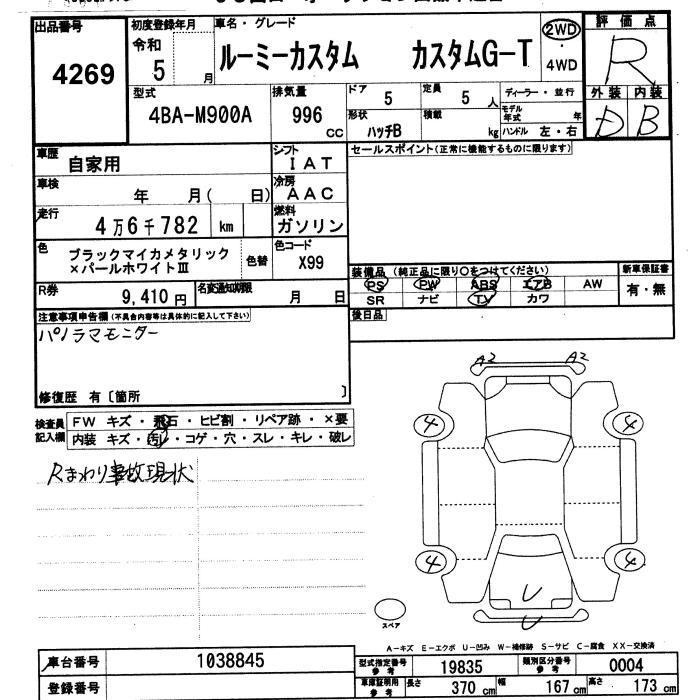 出品番号 初度登録年月 車名・グレード 評価点
4269 令和 5 月 ルーミーカスタム カスタムG-T 2WD・4WD R
型式 排気量 ドア 定員 ディーラー・並行 外装 内装
4BA-M900A 996 CC 5 5 人 モデル年式 年 D B
形状 ハッチB 積載 kg ハンドル 左・右
車歴 自家用 シフト IAT セールスポイント(正常に機能するものに限ります)
車検 年 月( 日) 冷房 AAC
走行 4万6千782 km 燃料 ガソリン
色 ブラックマイカメタリック×パールホワイトⅢ 色替 色コード X99
装備品(純正品に限り○をつけてください) 新車保証書
PS PW ABS エアB AW 有・無
SR ナビ TV カワ
R券 9,410円 名変通知期限 月 日
後日品
注意事項申告欄(不具合内容等は具体的に記入して下さい)
パノラマモニター
修復歴 有〔箇所 〕
検査員記入欄 FW キズ・飛石・ヒビ割・リペア跡・×要
内装 キズ・汚レ・コゲ・穴・スレ・キレ・破レ
Rまわり事故現状
A2 A2
4 4
4 4
U
U
スペア
A-キズ E-エクボ U-凹み W-補修跡 S-サビ C-腐食 XX-交換済
車台番号 1038845 型式指定番号 参考 19835 類別区分番号 参考 0004
登録番号 車庫証明用 参考 長さ 370 cm 幅 167 cm 高さ 173 cm